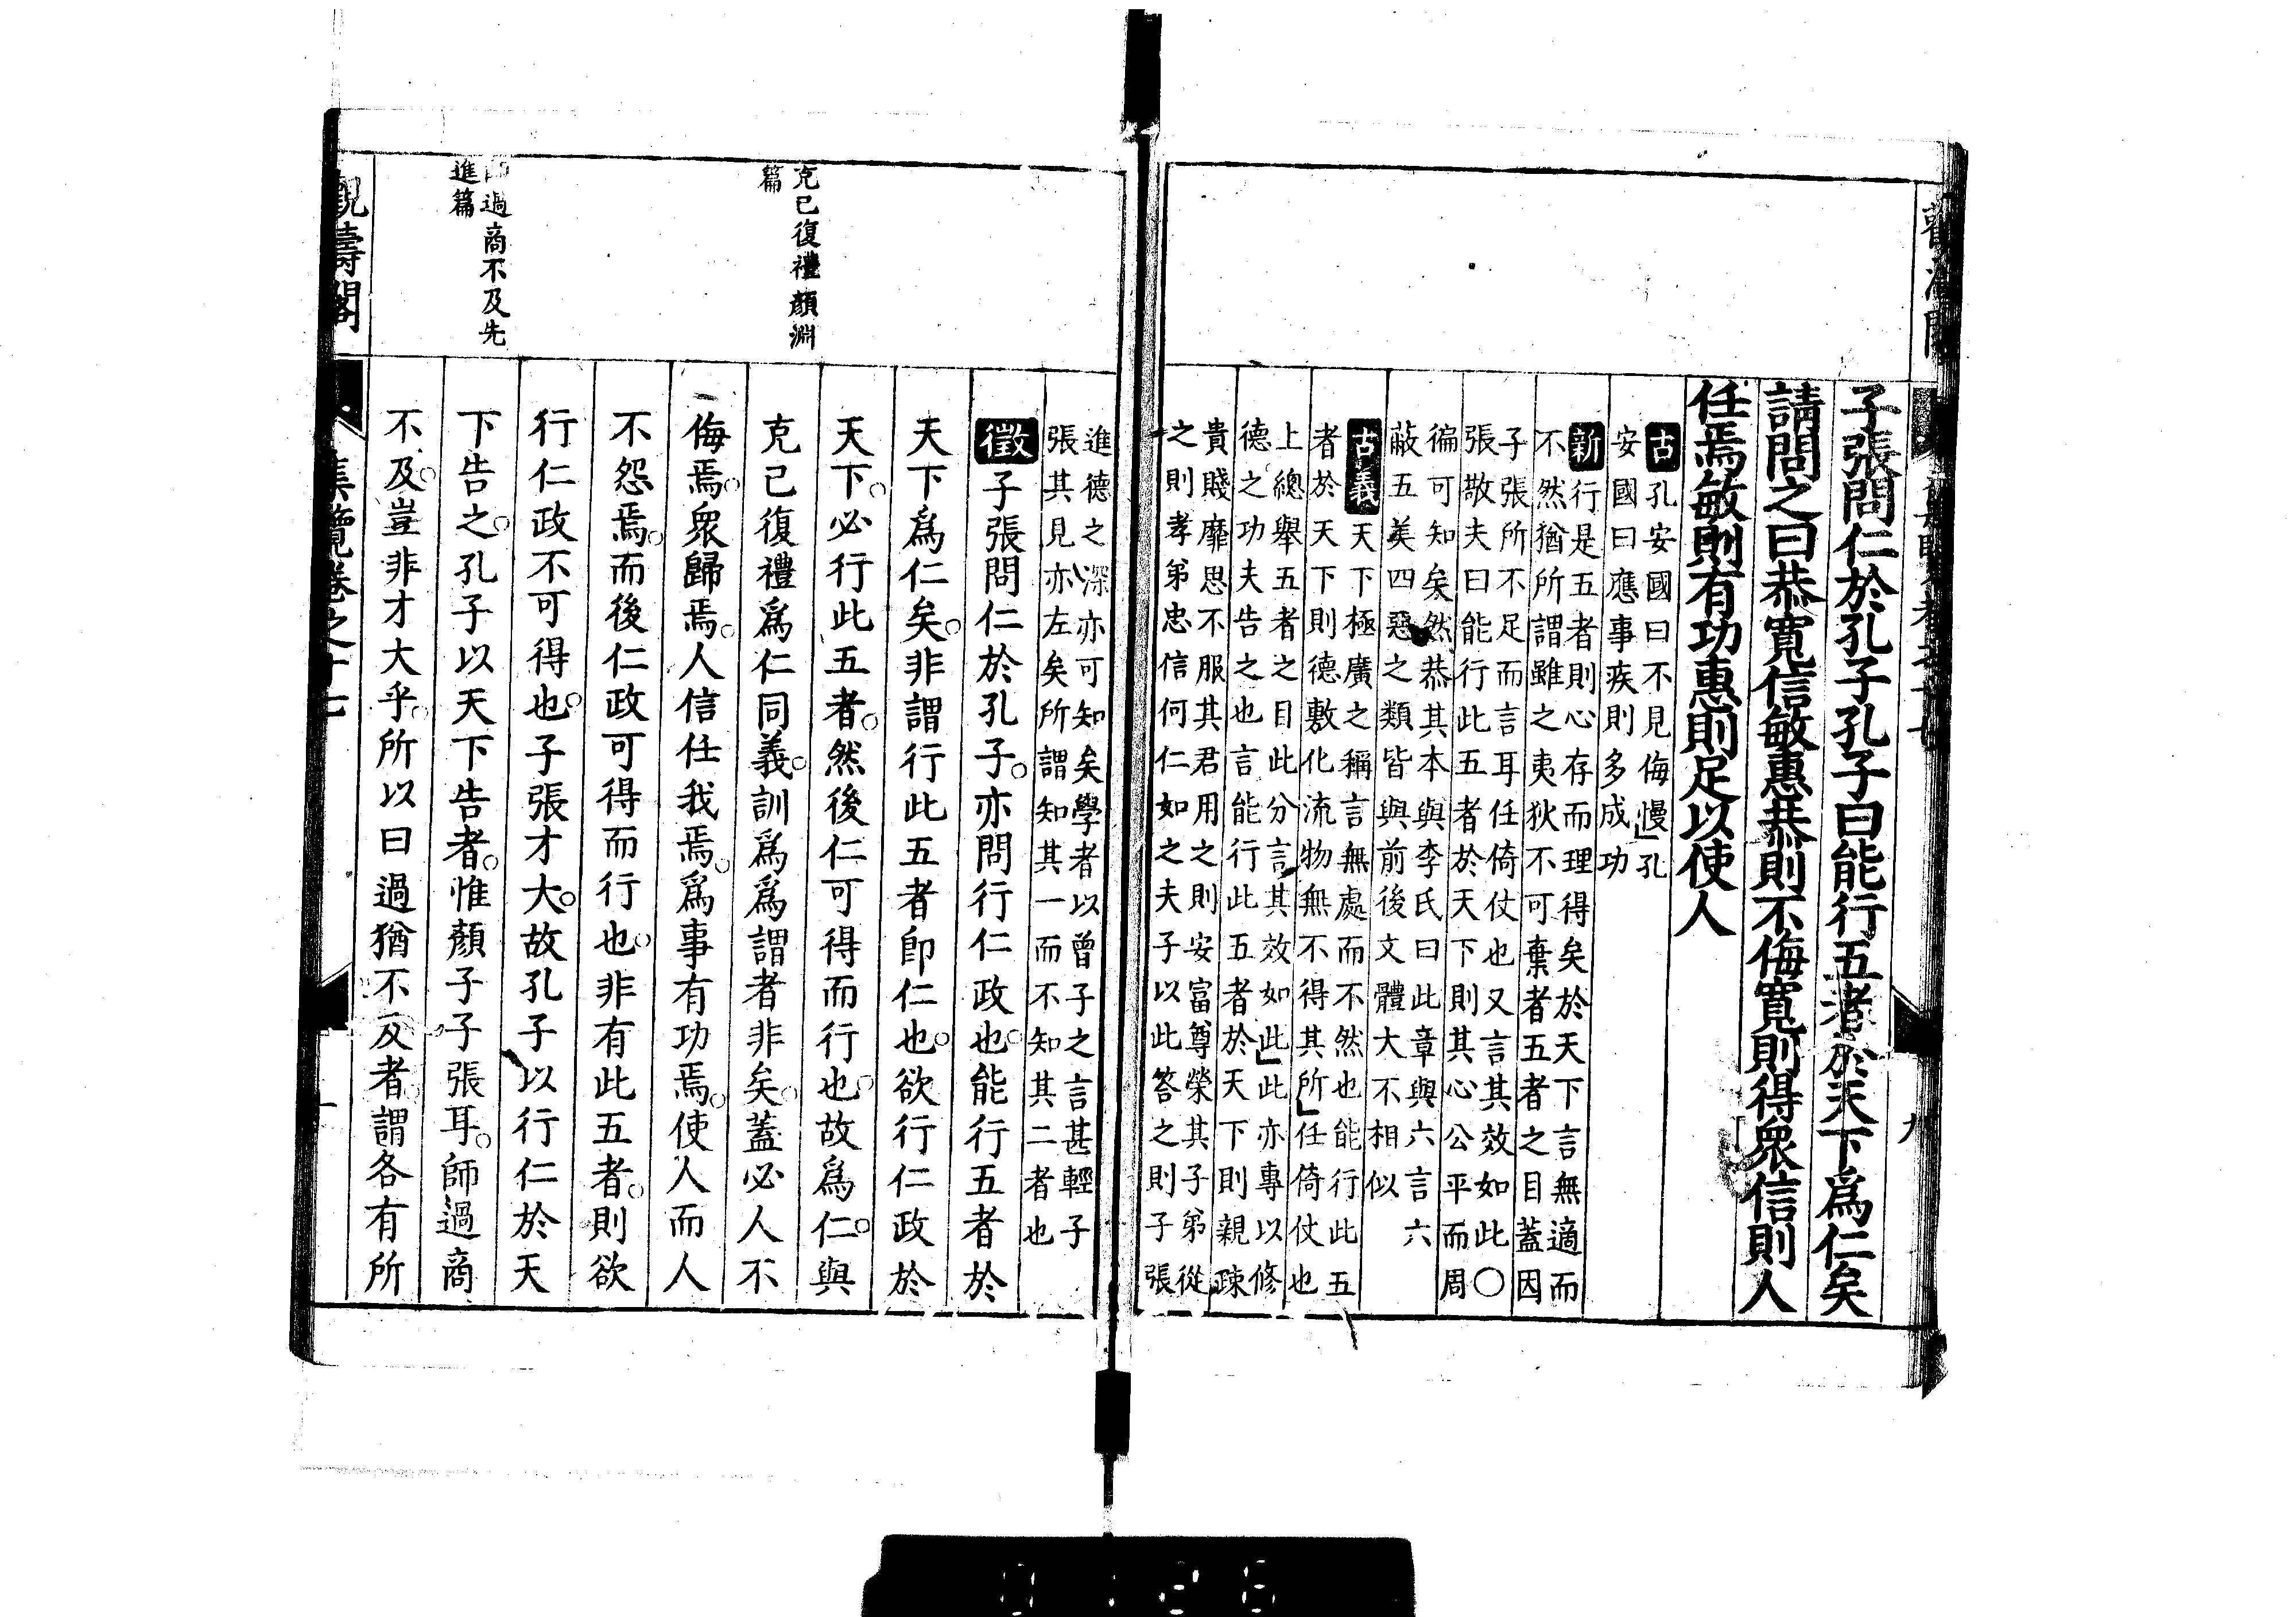 子張問仁於孔子孔子曰能行五者於天下爲仁矣
請問之曰恭寬信敏惠恭則不侮寬則得衆信則人
任焉敏則有功惠則足以使人
古孔安國曰不見侮慢」孔
安國曰應事疾則多成功
新行是五者則心存而理得矣於天下言無適而
不然猶所謂雖之夷狄不可棄者五者之目蓋因
子張所不足而言耳任倚仗也又言其效如此〇
張敬夫曰能行此五者於天下則其心公平而周
徧可知矣然恭其本與李氏曰此章與六言六
蔽五美四惡之類皆與前後文體大不相似
古義天下極廣之稱言無處而不然也能行此五
者於天下則德敷化流物無不得其所」任倚仗也
上總舉五者之目此分言其效如此」此亦專以修
德之功夫告之也言能行此五者於天下則親疎
貴賤靡思不服其君用之則安富尊榮其子弟從
之則孝弟忠信何仁如之夫子以此答之則子張
進德之深亦可知矣學者以曾子之言甚輕子
張其見亦左矣所謂知其一而不知其二者也
徵子張問仁於孔子。亦問行仁政也。能行五者於
天下爲仁矣。非謂行此五者卽仁也。欲行仁政於
天下。必行此五者。然後仁可得而行也。故爲仁。與
克己復禮爲仁同義。訓爲爲謂者非矣。蓋必人不
侮焉。衆歸焉。人信任我焉。爲事有功焉。使人而人
不怨焉。而後仁政可得而行也。非有此五者。則欲
行仁政不可得也。子張才大。故孔子以行仁於天
下告之。孔子以天下告者。惟顏子子張耳。師過商
不及。豈非才大乎。所以曰過猶不及者。謂各有所
克己復禮顏淵
篇
過商不及先
進篇
觀濤閣
集覽卷之十七
九